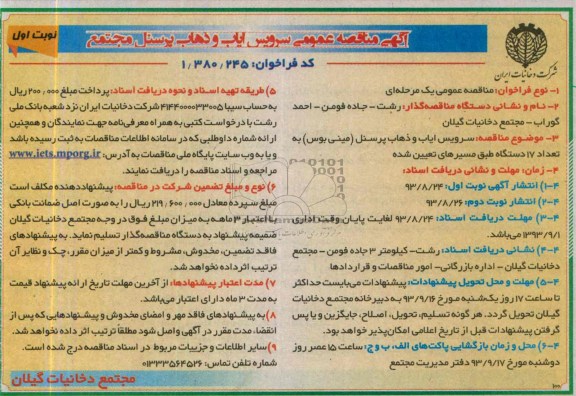 آگهی مناقصه عمومی سرویس ایاب و ذهاب پرسنل مجتمع
نوبت اول
کد فراخوان: ۱٫۳۸۰٫۲۴۵
شرکت دخانیات ایران
۱- نوع فراخوان: مناقصه عمومی یک مرحله‌ای
۲- نام و نشانی دستگاه مناقصه‌گذار: رشت - جاده فومن - احمد
گوراب - مجتمع دخانیات گیلان
۳- موضوع مناقصه: سرویس ایاب و ذهاب پرسنل (مینی بوس) به
تعداد ۱۷ دستگاه طبق مسیرهای تعیین شده
۴- زمان: مهلت و نشانی دریافت اسناد:
۴-۱) انتشار آگهی نوبت اول: ۹۳/۸/۲۴
۴-۲) انتشار نوبت دوم: ۹۳/۸/۲۶
۴-۳) مهلت دریافت اسناد: ۹۳/۸/۲۴ لغایت پایان وقت اداری
۱۳۹۳/۹/۱ می‌باشد.
۴-۴) نشانی دریافت اسناد: رشت- کیلومتر ۳ جاده فومن - مجتمع
دخانیات گیلان - اداره بازرگانی- امور مناقصات و قراردادها
۴-۵) مهلت و محل تحویل پیشنهادات: پیشنهادات می‌بایست حداکثر
تا ساعت ۱۷ روز یک‌شنبه مورخ ۹۳/۹/۱۶ به دبیرخانه مجتمع دخانیات
گیلان تحویل گردد. هر گونه تسلیم، تحویل، اصلاح، جایگزین و یا پس
گرفتن پیشنهادات قبل از تاریخ اعلامی امکان‌پذیر خواهد بود.
۴-۶) محل و زمان بازگشایی پاکت‌های الف، ب و ج: ساعت ۱۵ عصر روز
دوشنبه مورخ ۹۳/۹/۱۷ دفتر مدیریت مجتمع
۵) طریقه تهیه اسناد و نحوه دریافت اسناد: پرداخت مبلغ ۲۰۰٫۰۰۰ ریال
به حساب سیبا ۴۱۴۴۰۰۰۰۳۳۰۰۵ شرکت دخانیات ایران نزد شعبه بانک ملی
رشت با درخواست کتبی به همراه معرفی‌نامه جهت نمایندگان و همچنین
ارائه شماره داوطلبی که در سامانه اطلاعات مناقصات به ثبت رسیده باشد
و یا به وب سایت پایگاه ملی مناقصات به آدرس: www.iets.mporg.ir
مراجعه و اسناد مناقصه را دریافت نمایند.
۶) نوع و مبلغ تضمین شرکت در مناقصه: پیشنهاددهنده مکلف است
مبلغ سپرده معادل ۲۱۹٫۶۰۰٫۰۰۰ ریال را به صورت اصل ضمانت بانکی
با اعتبار ۳ ماهه به میزان مبلغ فوق در وجه مجتمع دخانیات گیلان
ضمیمه پیشنهاد به دستگاه مناقصه‌گذار تسلیم نماید. به پیشنهادهای
فاقد تضمین، مخدوش، مشروط و کمتر از میزان مقرر، چک و نظایر آن
ترتیب اثر داده نخواهد شد.
۷) مدت اعتبار پیشنهادها: از آخرین مهلت تاریخ ارائه پیشنهاد قیمت
به مدت ۳ ماه دارای اعتبار می‌باشد.
۸) به پیشنهادهای فاقد مهر و امضای مخدوش و پیشنهادهایی که پس از
انقضاء مدت مقرر در آگهی واصل شود مطلقاً ترتیب اثر داده نخواهد شد.
۹) سایر اطلاعات و جزییات مربوط در اسناد مناقصه درج شده است.
شماره تلفن تماس: ۰۱۳۳۳۵۶۴۵۲۶
مجتمع دخانیات گیلان